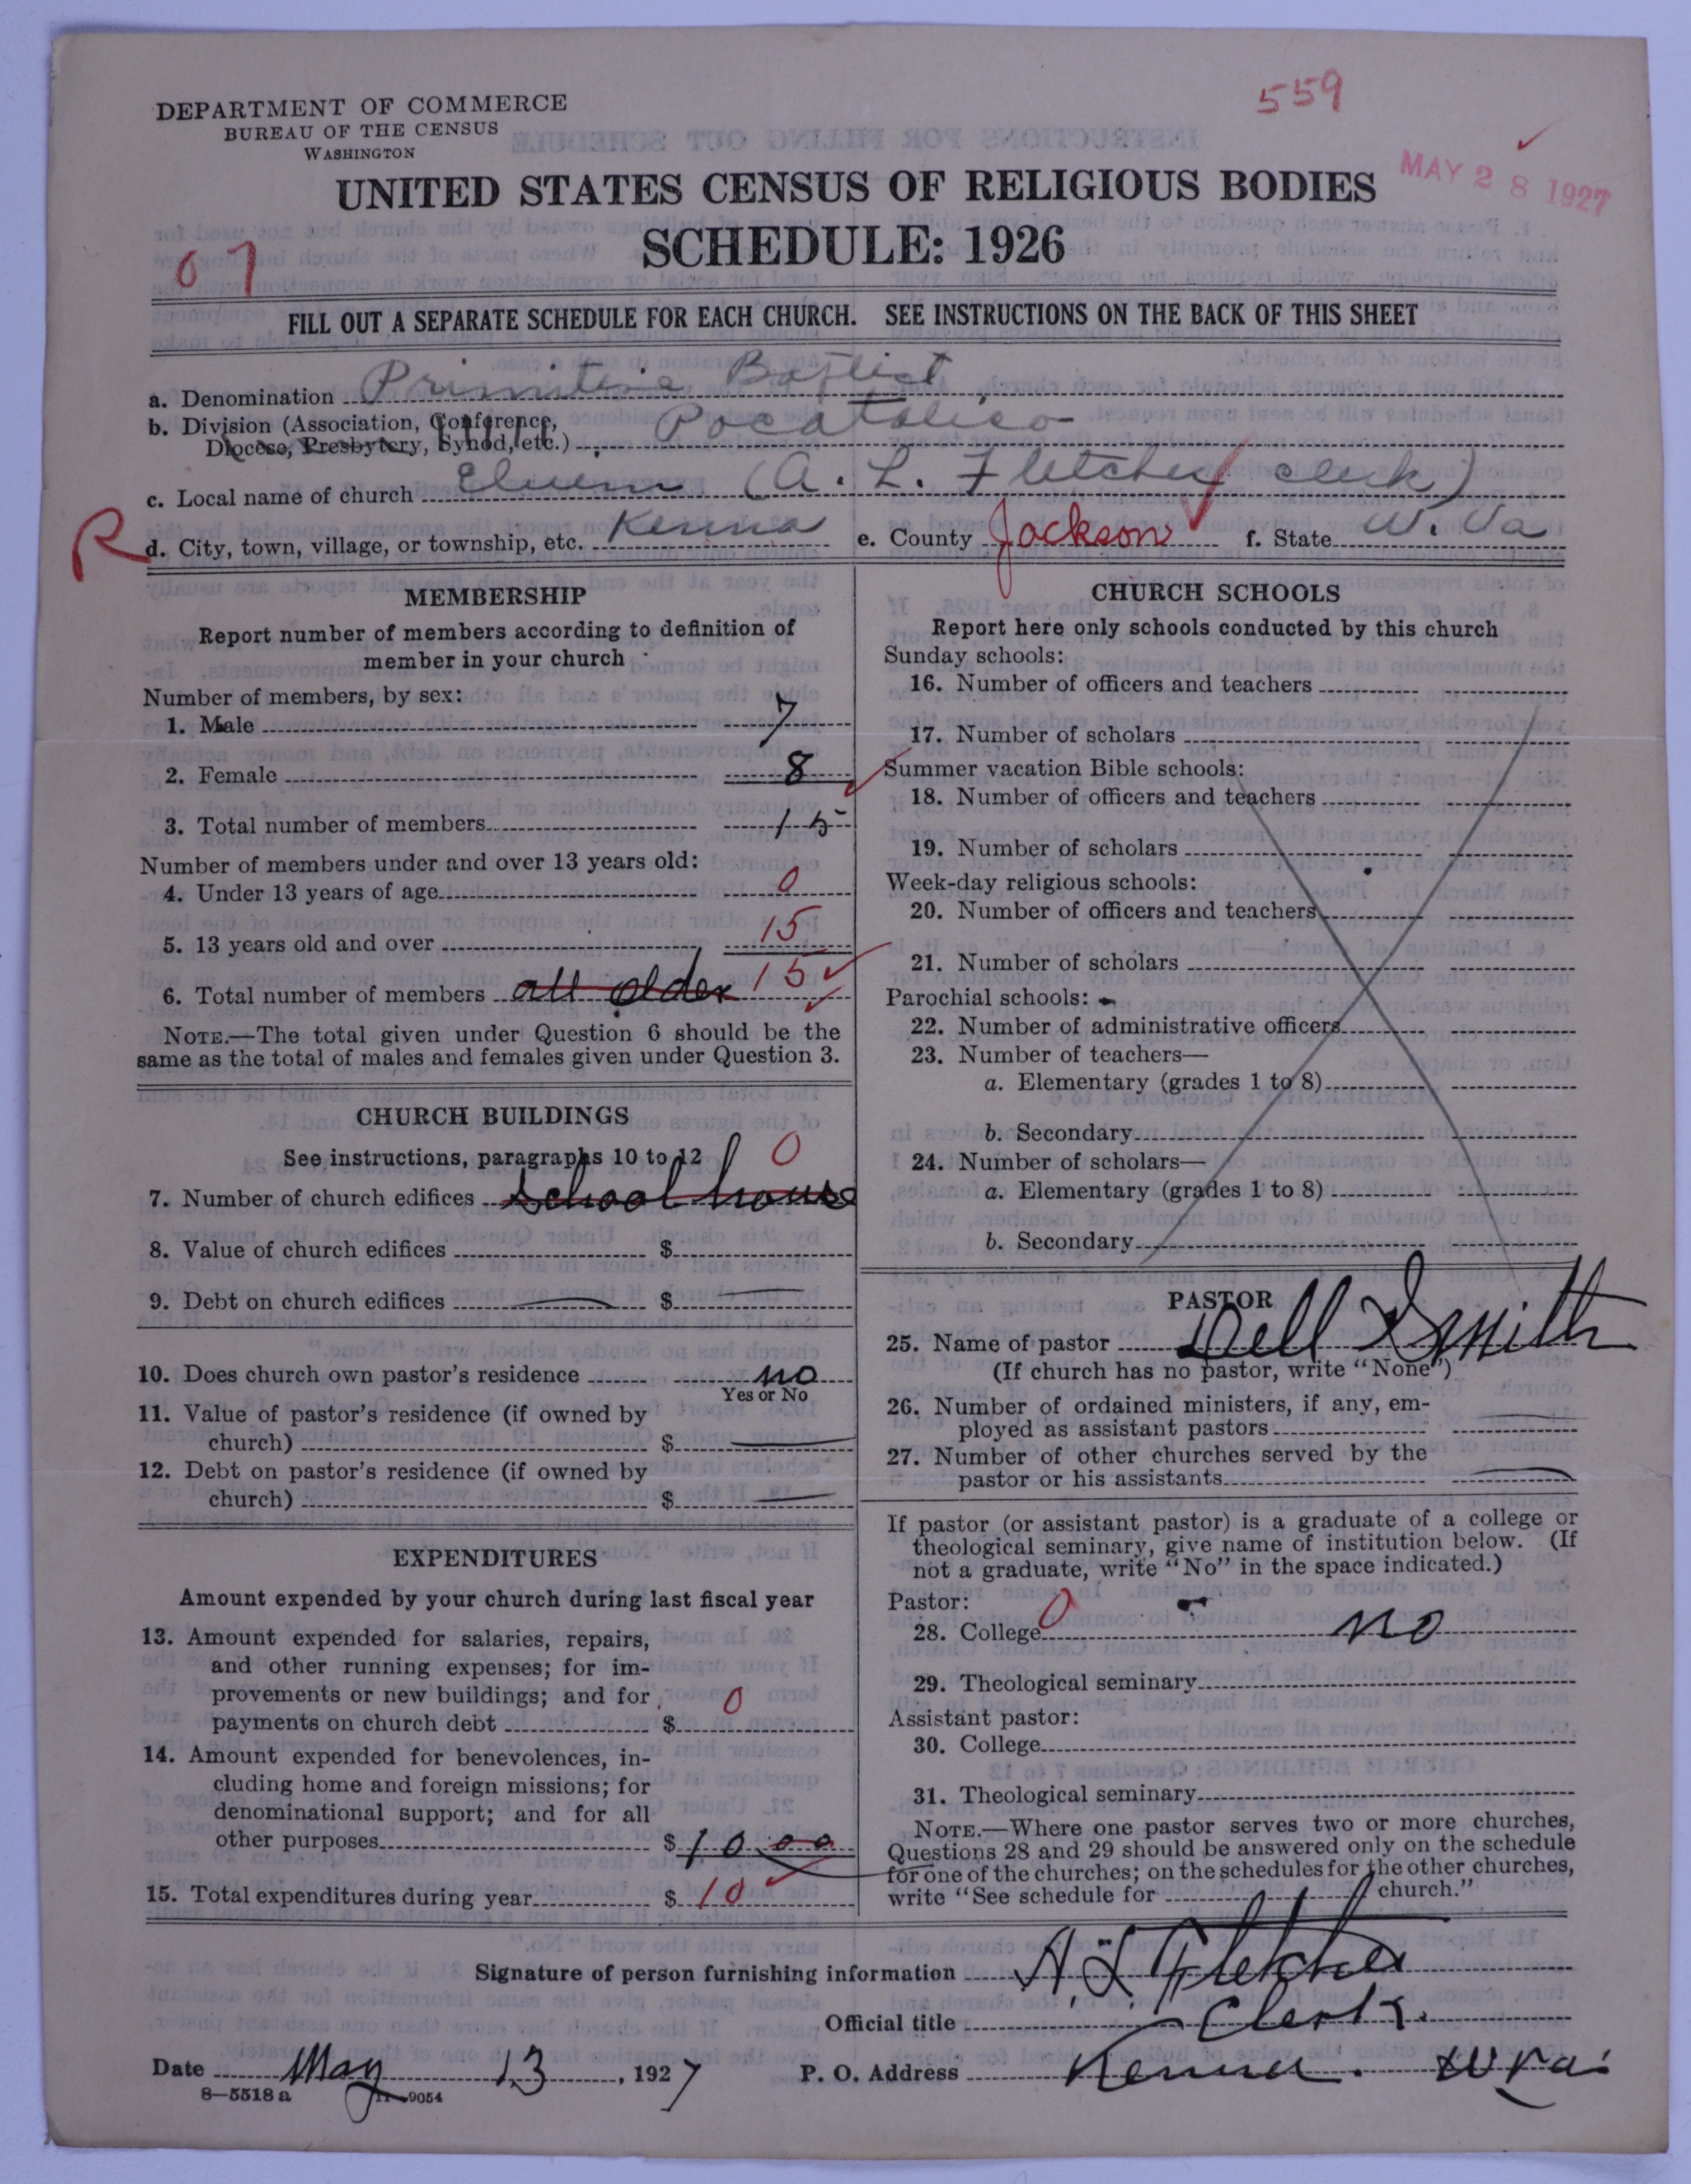 559
DEPARTMENT OF COMMERCE
BUREAU OF THE CENSUS
WASHINGTON
MAY 28 1927
UNITED STATES CENSUS OF RELIGIOUS BODIES
SCHEDULE: 1926
07
FILL OUT A SEPARATE SCHEDULE FOR EACH CHURCH. SEE INSTRUCTIONS ON THE BACK OF THIS SHEET
a. Denomination Primitive Baptist
b. Division (Association, Conference, Diocese, Presbytery, Synod, etc.) Pocatalico
c. Local name of church (A. L. Fletcher clerk)
R
d. City, town, village, or township, etc. Kenna e. County Jackson f. State W. Va
MEMBERSHIP
Report number of members according to definition of
member in your church
Number of members, by sex:
1. Male 7
2. Female 8
3. Total number of members 15
Number of members under and over 13 years old:
4. Under 13 years of age 0
5. 13 years old and over 15
6. Total number of members all older 15
NOTE.—The total given under Question 6 should be the
same as the total of males and females given under Question 3.
CHURCH BUILDINGS
See instructions, paragraphs 10 to 12 0
7. Number of church edifices school house
8. Value of church edifices $
9. Debt on church edifices $
10. Does church own pastor's residence no
Yes or No
11. Value of pastor's residence (if owned by
church) $
12. Debt on pastor's residence (if owned by
church) $
EXPENDITURES
Amount expended by your church during last fiscal year
13. Amount expended for salaries, repairs,
and other running expenses; for im-
provements or new buildings; and for
payments on church debt $ 0
14. Amount expended for benevolences, in-
cluding home and foreign missions; for
denominational support; and for all
other purposes $ 10 00
15. Total expenditures during year $ 10
CHURCH SCHOOLS
Report here only schools conducted by this church
Sunday schools:
16. Number of officers and teachers
17. Number of scholars
Summer vacation Bible schools:
18. Number of officers and teachers
19. Number of scholars
Week-day religious schools:
20. Number of officers and teachers
21. Number of scholars
Parochial schools:
22. Number of administrative officers
23. Number of teachers—
a. Elementary (grades 1 to 8)
b. Secondary
24. Number of scholars—
a. Elementary (grades 1 to 8)
b. Secondary
PASTOR
25. Name of pastor Dell Smith
(If church has no pastor, write "None")
26. Number of ordained ministers, if any, em-
ployed as assistant pastors
27. Number of other churches served by the
pastor or his assistants
If pastor (or assistant pastor) is a graduate of a college or
theological seminary, give name of institution below. (If
not a graduate, write "No" in the space indicated.)
Pastor:
28. College 0 no
29. Theological seminary
Assistant pastor:
30. College
31. Theological seminary
NOTE.—Where one pastor serves two or more churches,
Questions 28 and 29 should be answered only on the schedule
for one of the churches; on the schedules for the other churches,
write "See schedule for church."
Signature of person furnishing information A. L. Fletcher
Official title Clerk.
Date May 13, 1927 P. O. Address Kenna. W Va.
8—5518 a 11—9054